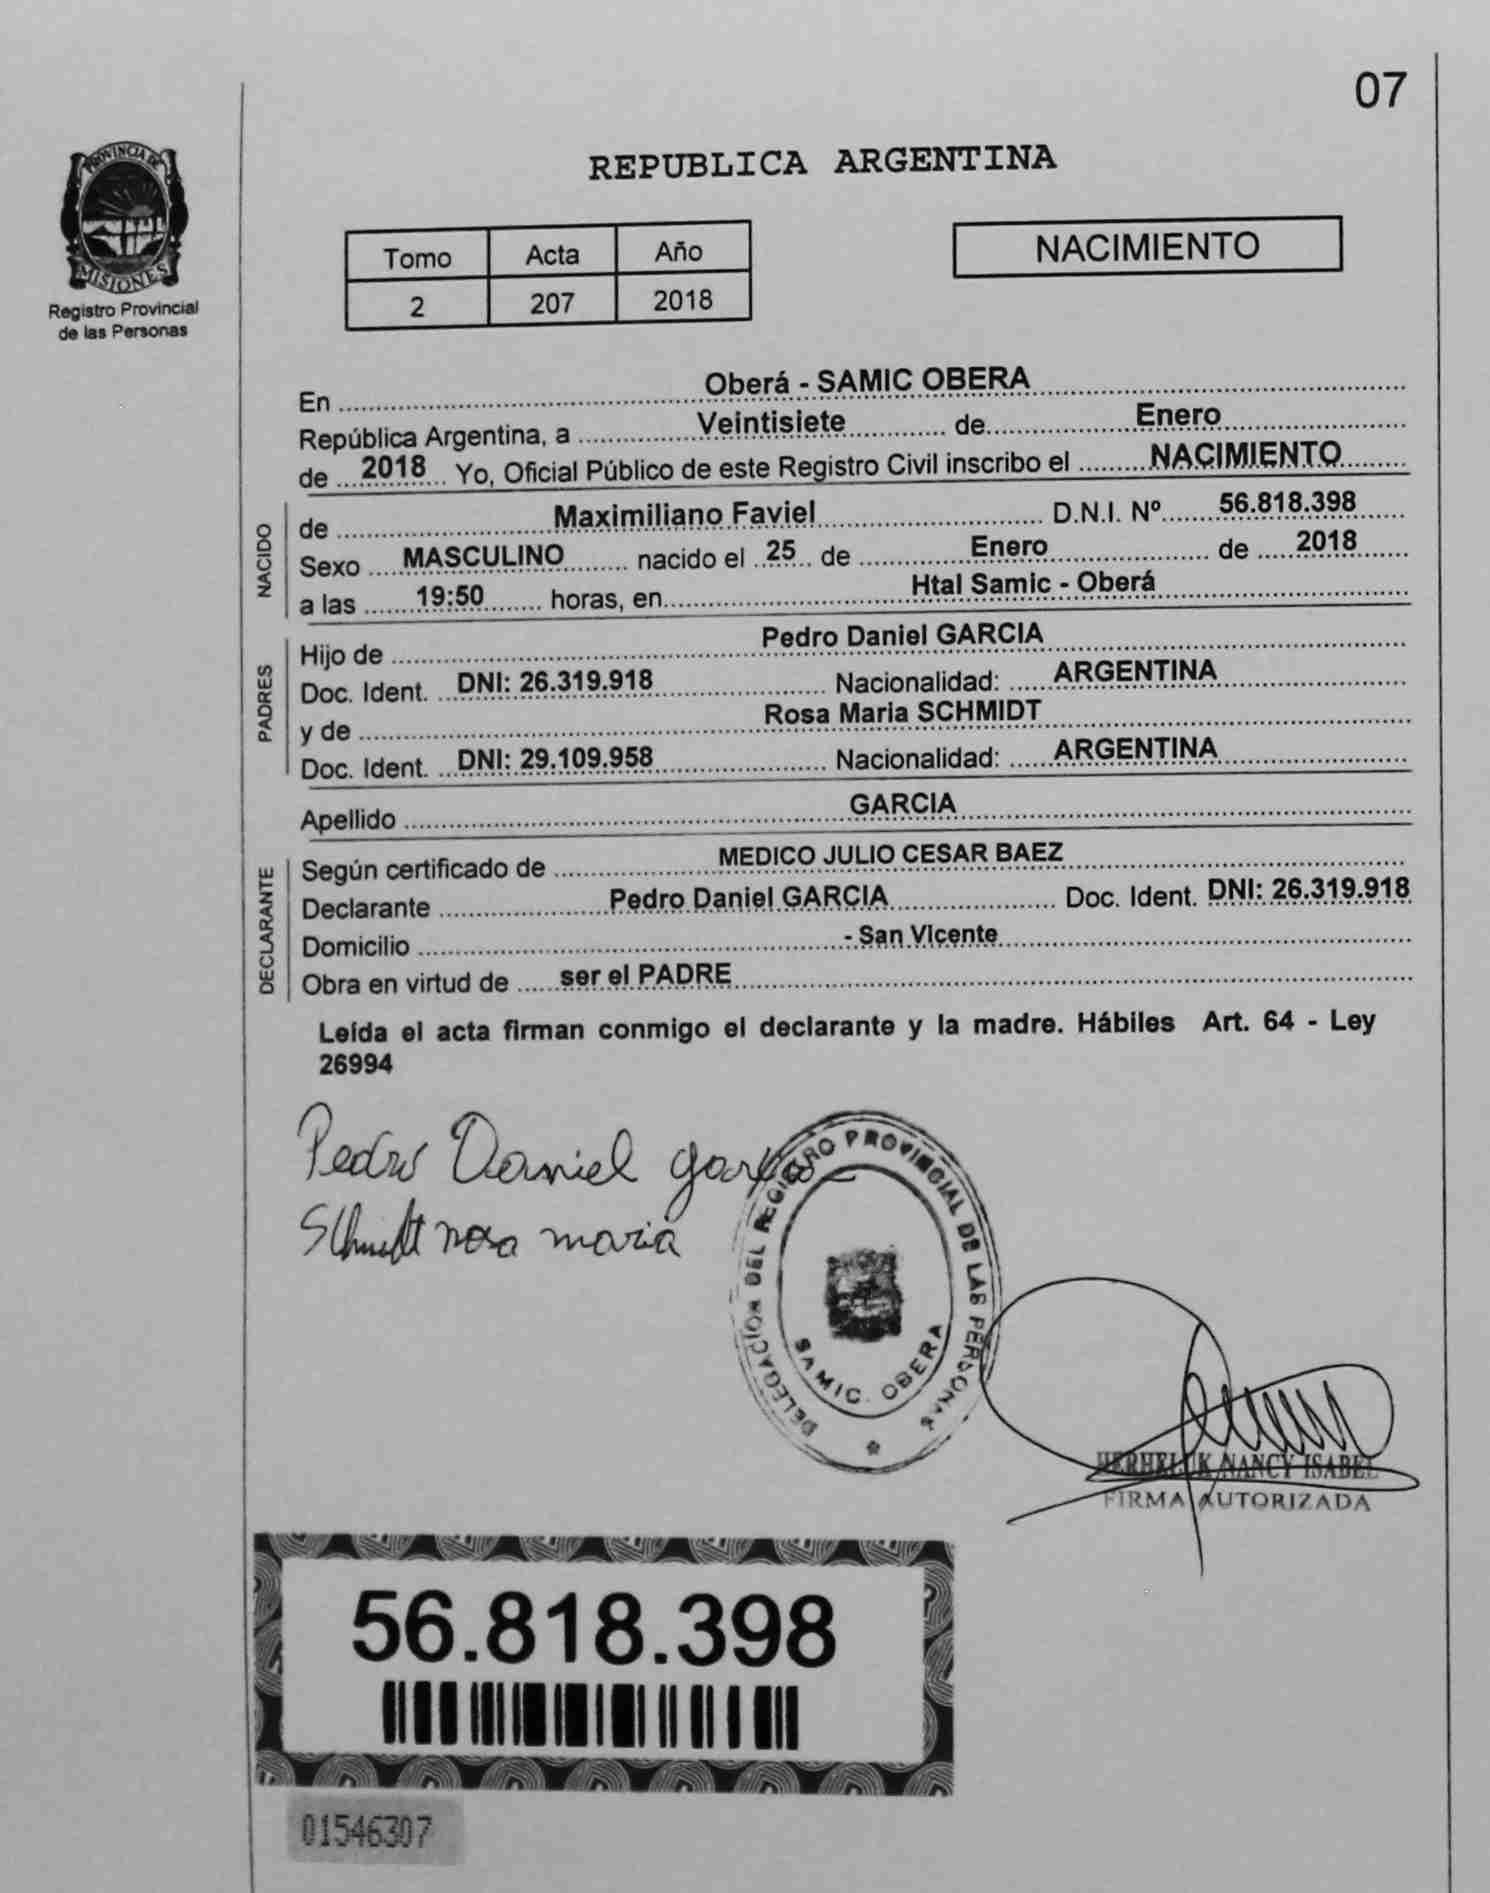 07
PROVINCIA DE
MISIONES
Registro Provincial
de las Personas
REPUBLICA ARGENTINA
Tomo Acta Año
2 207 2018
NACIMIENTO
En Oberá - SAMIC OBERA
República Argentina, a Veintisiete de Enero
de 2018 Yo, Oficial Público de este Registro Civil inscribo el NACIMIENTO
NACIDO
de Maximiliano Faviel D.N.I. Nº 56.818.398
Sexo MASCULINO nacido el 25 de Enero de 2018
a las 19:50 horas, en Htal Samic - Oberá
PADRES
Hijo de Pedro Daniel GARCIA
Doc. Ident. DNI: 26.319.918 Nacionalidad: ARGENTINA
y de Rosa Maria SCHMIDT
Doc. Ident. DNI: 29.109.958 Nacionalidad: ARGENTINA
Apellido GARCIA
DECLARANTE
Según certificado de MEDICO JULIO CESAR BAEZ
Declarante Pedro Daniel GARCIA Doc. Ident. DNI: 26.319.918
Domicilio - San Vicente
Obra en virtud de ser el PADRE
Leída el acta firman conmigo el declarante y la madre. Hábiles Art. 64 - Ley
26994
Pedro Daniel garcia
SChmidt rosa maria
DELEGACION DEL REGISTRO PROVINCIAL DE LAS PERSONAS
SAMIC. OBERA
NANCY ISABEL
FIRMA AUTORIZADA
56.818.398
01546307